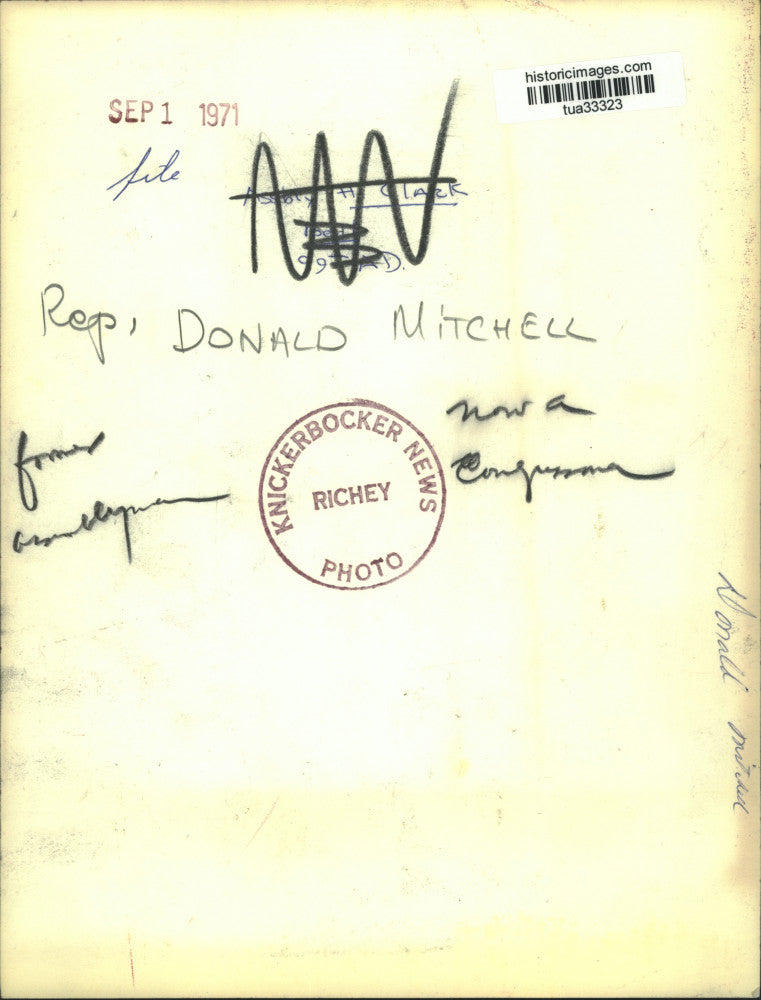 historicimages.com
tua33323
SEP 1 1971
file
H. Clark
Rep, DONALD MITCHELL
now a
Congressman
former
assemblyman
KNICKERBOCKER NEWS
RICHEY
PHOTO
Donald Mitchell